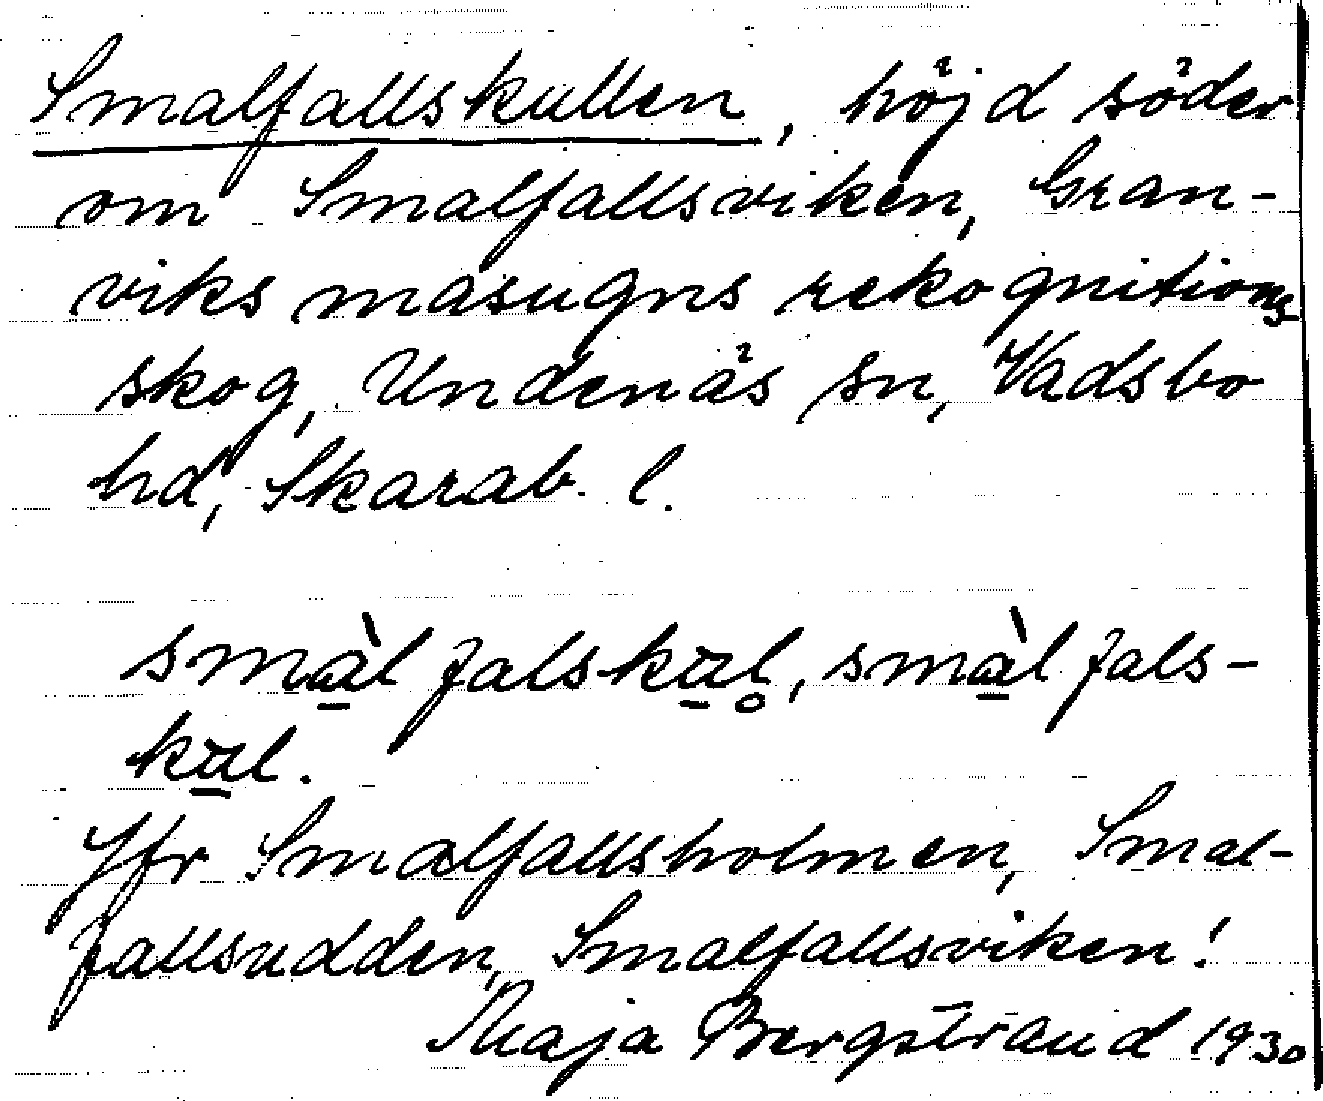 Smalfallskullen, höjd söder
om Smalfallsviken, Gran-
viks masugns rekognitions
skog, Undenäs sn, Vadsbo
hd, Skarab. l.
smàl falskul̥, smàl fals-
kul.
Jfr Smalfallsholmen, Smal-
fallsudden, Smalfallsviken!
Maja Bergstrand 1930